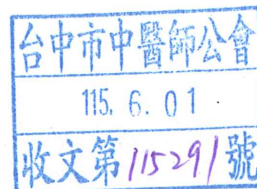 台中市中醫師公會
115. 6. 01
收文第115291號